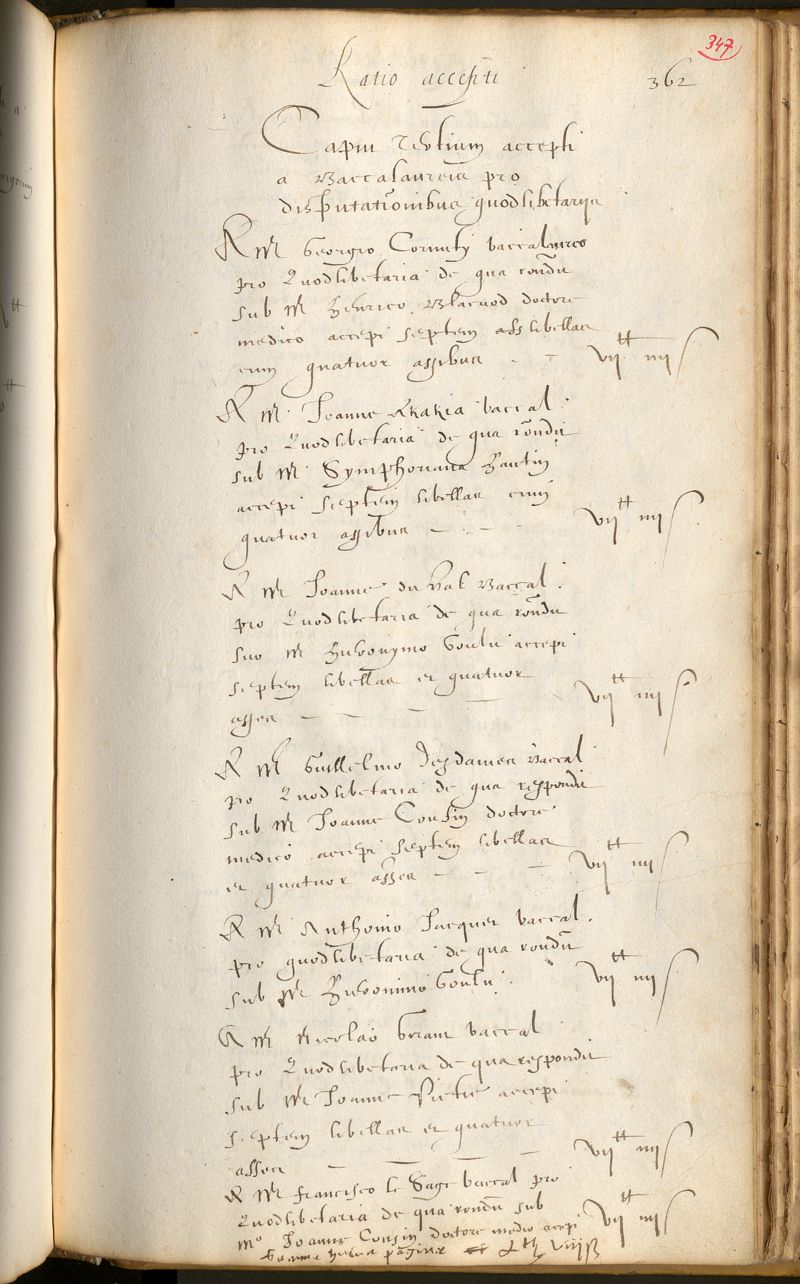 347
Ratio accepti 362
Caput tertium accepti
a Baccalaureis pro
disputationibus quodlibetarijs
A M Georgio Cornuty baccalaureo
pro Quodlibetaria de qua rondit
sub M Henrico Blacuod doctore
medico accepi septem libellas
cum quatuor assibus - - vij tt iiij s
A M Joanne Akakia baccal.
pro Quodlibetaria de qua rondit
sub M Symphoriana
accepi septem libellas cum
quatuor assibus - - vij tt iiij s
A M Joanne du Val Baccal.
pro Quodlibetaria de qua rondit
suo M Hieronymo Goulu accepi
septem libellas et quatuor
asses - - - - vij tt iiij s
A M Guillelmo Desdames Baccal
pro Quodlibetaria de qua respondit
sub M Joanne Cousin doctore
medico accepi septem libellas
et quatuor asses - - - vij tt iiij s
A M Anthonio Jacquet baccal.
pro quodlibetaria de qua rondit
sub M Hieronimo Goulu. vij tt iiij s
A M Nicolao baccal
pro Quodlibetaria de qua respondit
sub M Joanne Pietre accepi
septem libellas et quatuor
asses - - - - vij tt iiij s
A M francisco le Sage baccal pro
Quodlibetaria de qua rondit sub
Mo Joanne Cousin doctore medico accepi vij tt iiij s
Summa paginæ